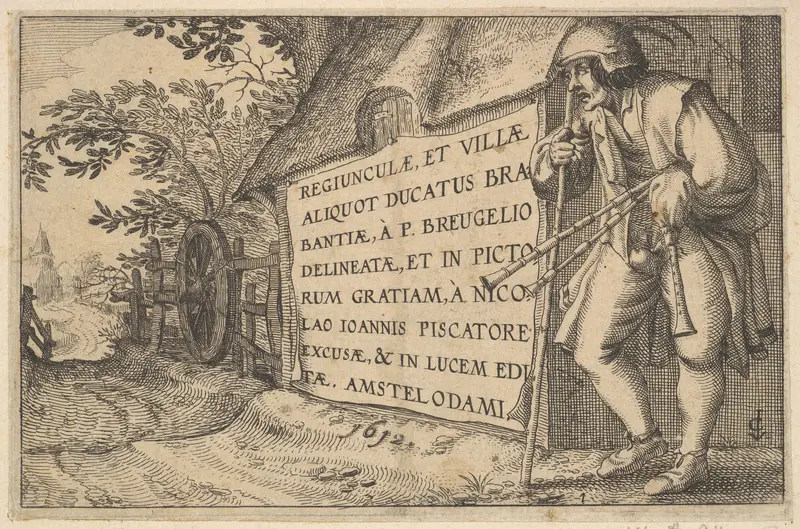 REGIUNCULÆ, ET VILLÆ
ALIQUOT DUCATUS BRA
BANTIÆ, À P. BREUGELIO
DELINEATÆ, ET IN PICTO
RUM GRATIAM, À NICO
LAO IOANNIS PISCATORE
EXCUSÆ, & IN LUCEM EDI
TÆ. AMSTELODAMI
1612.
1